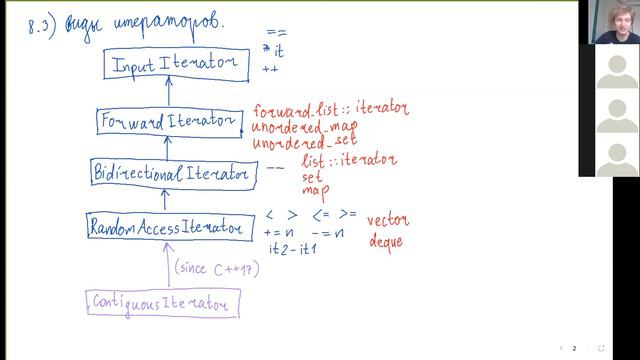 8.3) Виды итераторов.
==
*it
++
InputIterator
ForwardIterator
forward_list::iterator
unordered_map
unordered_set
BidirectionalIterator
--
list::iterator
set
map
RandomAccessIterator
< > <= >=
+= n -= n
it2-it1
vector
deque
(since C++17)
ContiguousIterator
2